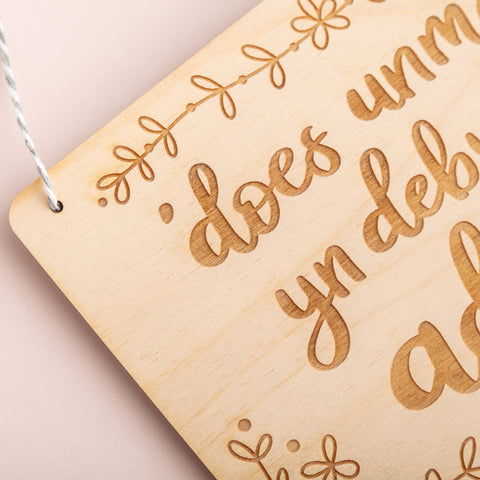 'does unm
yn deby
ad